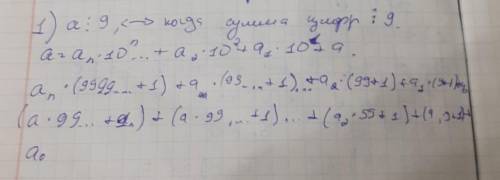 1) a ⋮ 9, <-> когда сумма цифр ⋮ 9.
a = aₙ·10ⁿ... + a₂·10²+ a₁·10¹+ a.
aₙ·(9999...+1)+a ·(99...+1)...+a₂·(99+1)+a₁·(9+1)
(a·99...+a)+(a·99,...+1)...+(a₂·99+1)+(a,9+1)+
a₀